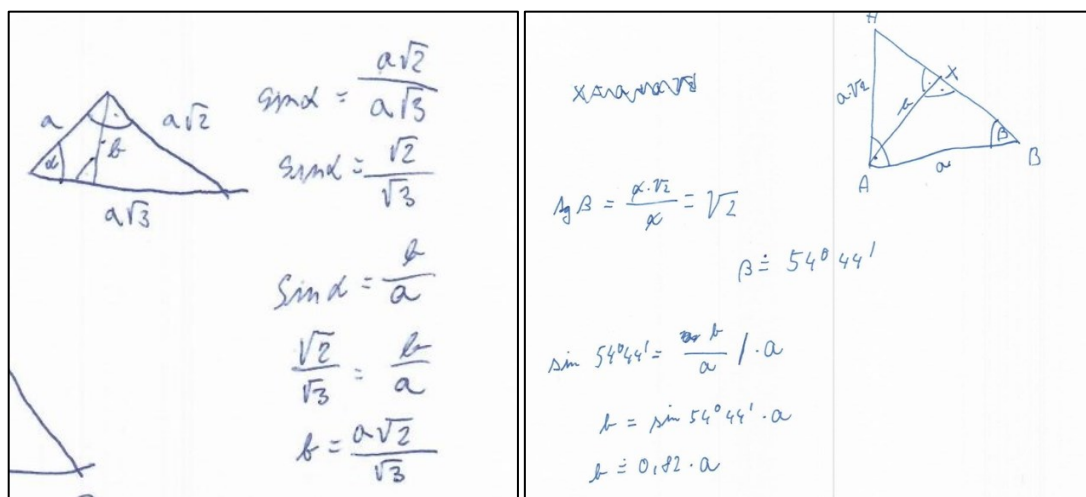 a
a√2
α
b
a√3
sinα = a√2/a√3
sinα = √2/√3
sinα = b/a
√2/√3 = b/a
b = a√2/√3
H
X
a·√2
b
β
B
A
a
tg β = a·√2/a = √2
β ≐ 54° 44'
sin 54°44' = b/a / · a
b = sin 54°44' · a
b ≐ 0,82 · a